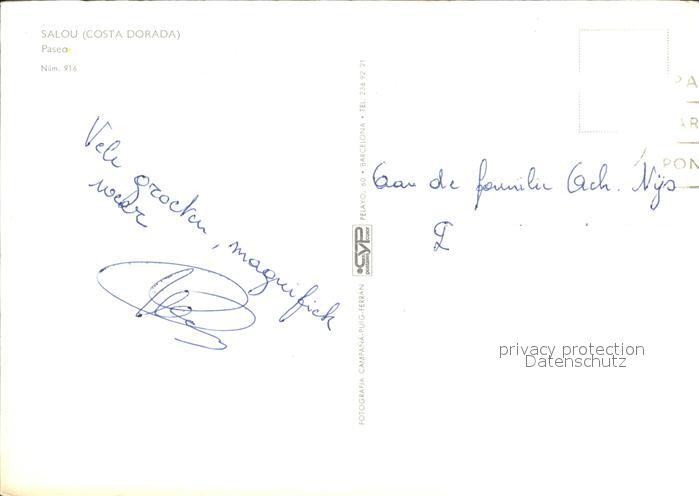 SALOU (COSTA DORADA)
Paseo
Núm. 916
Vele groeten, magnifiek
weer
PELAYO, 60 • BARCELONA • TEL. 236 92 21
CYP
color
postales
FOTOGRAFIA CAMPAÑA-PUIG-FERRÁN
PA
AR
PON
Aan de familie Ach. Nijs
privacy protection
Datenschutz